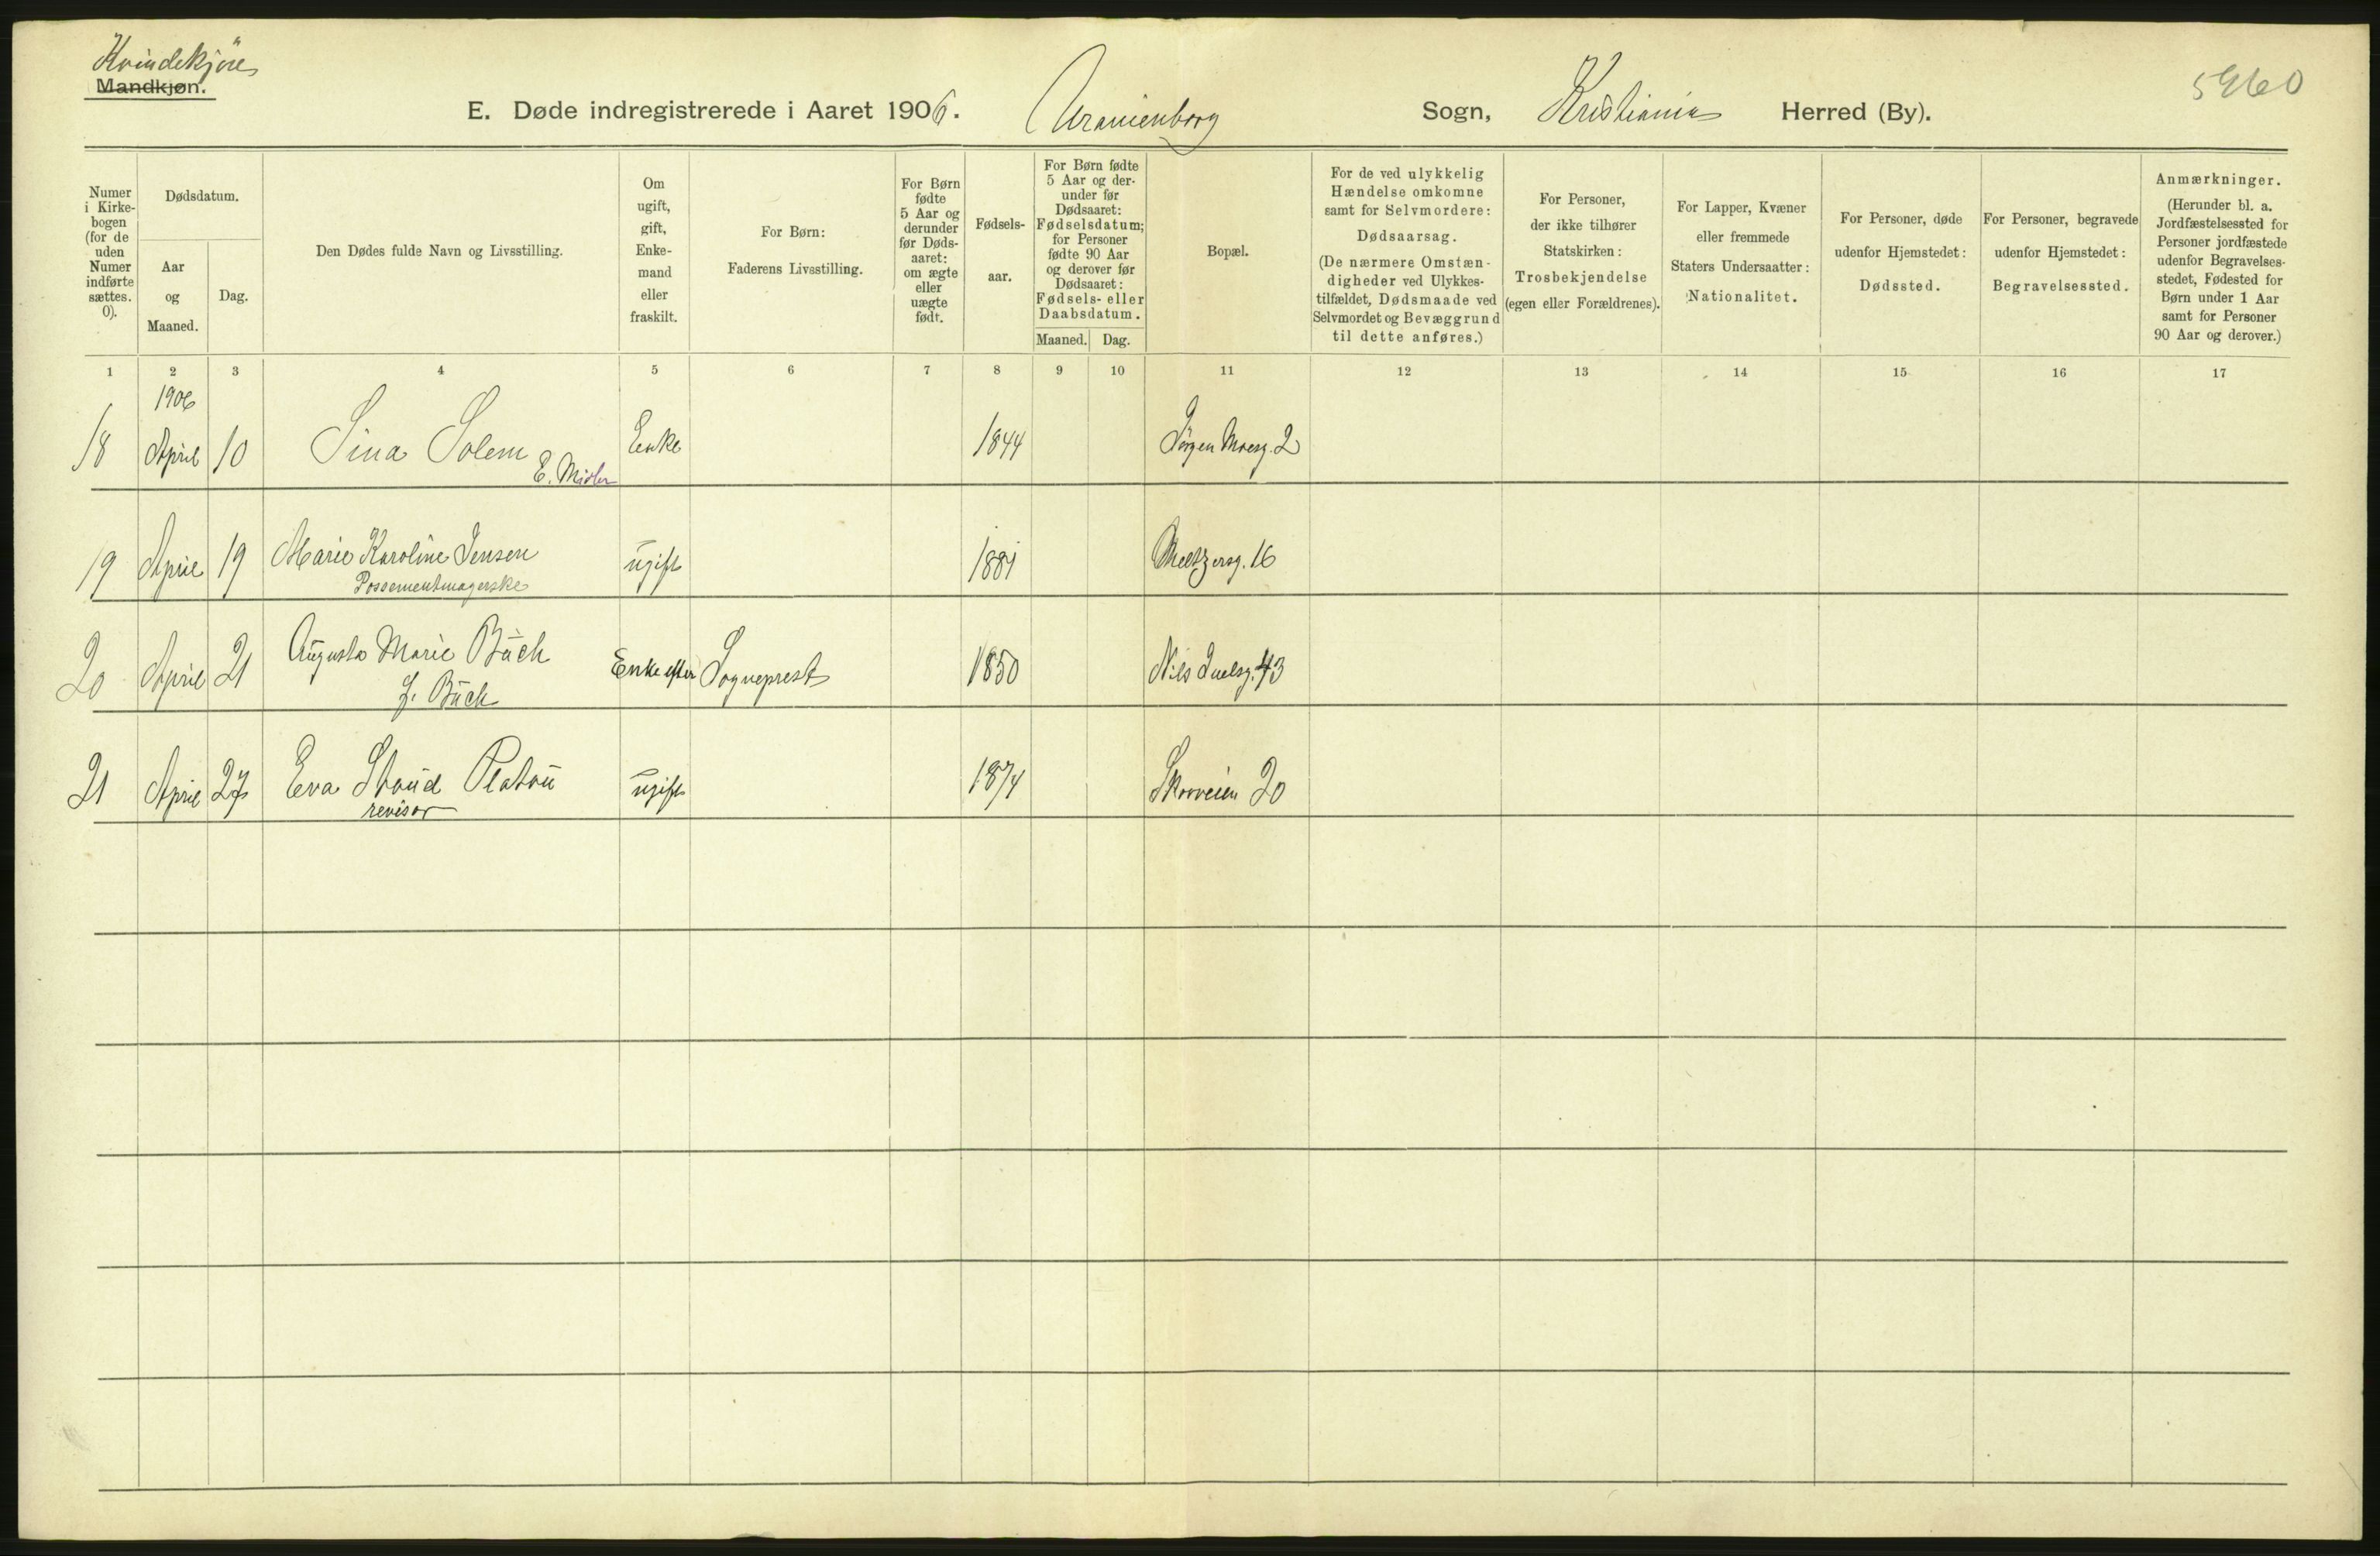 Kvindekjøn
Mandkjøn.
E. Døde indregistrerede i Aaret 1906. Uranienborg Sogn, Kristiania Herred (By).
5960
Numer
i Kirke-
bogen
(for de
uden
Numer
indførte
sættes.
0).
Dødsdatum.
Aar
og
Maaned.
Dag.
Den Dødes fulde Navn og Livsstilling.
Om
ugift,
gift,
Enke-
mand
eller
fraskilt.
For Børn:
Faderens Livsstilling.
For Børn
fødte
5 Aar og
derunder
før Døds-
aaret:
om ægte
eller
uægte
født.
Fødsels-
aar.
For Børn fødte
5 Aar og der-
under før
Dødsaaret:
Fødselsdatum;
for Personer
fødte 90 Aar
og derover før
Dødsaaret:
Fødsels- eller
Daabsdatum.
Maaned. Dag.
Bopæl.
For de ved ulykkelig
Hændelse omkomne
samt for Selvmordere:
Dødsaarsag.
(De nærmere Omstæn-
digheder ved Ulykkes-
tilfældet, Dødsmaade ved
Selvmordet og Bevæggrund
til dette anføres.)
For Personer,
der ikke tilhører
Statskirken:
Trosbekjendelse
(egen eller Forældrenes).
For Lapper, Kvæner
eller fremmede
Staters Undersaatter:
Nationalitet.
For Personer, døde
udenfor Hjemstedet:
Dødssted.
For Personer, begravede
udenfor Hjemstedet:
Begravelsessted.
Anmærkninger.
(Herunder bl. a.
Jordfæstelsessted for
Personer jordfæstede
udenfor Begravelses-
stedet, Fødested for
Børn under 1 Aar
samt for Personer
90 Aar og derover.)
1 2 3 4 5 6 7 8 9 10 11 12 13 14 15 16 17
1906
18 April 10 Sina Solem Enke 1844 Jørgen Moesg. 2
E. Midler
19 April 19 Marie Karoline Jensen ugift 1881 Meltzersg. 16
Possementmagerske
20 April 21 Augusta Marie Buch Enke efter Sogneprest 1850 Nils Juelsg. 43
f. Buch
21 April 27 Eva Stoud Platou ugift 1874 Skovveien 20
revisor